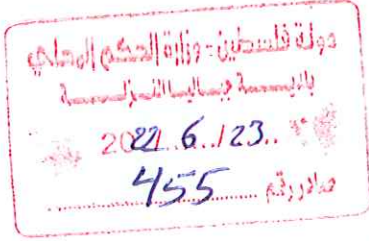 دولة فلسطين - وزارة الحكم المحلي
بلديـــة جباليا النزلـــة
2022.6./23..
صادر رقم 455